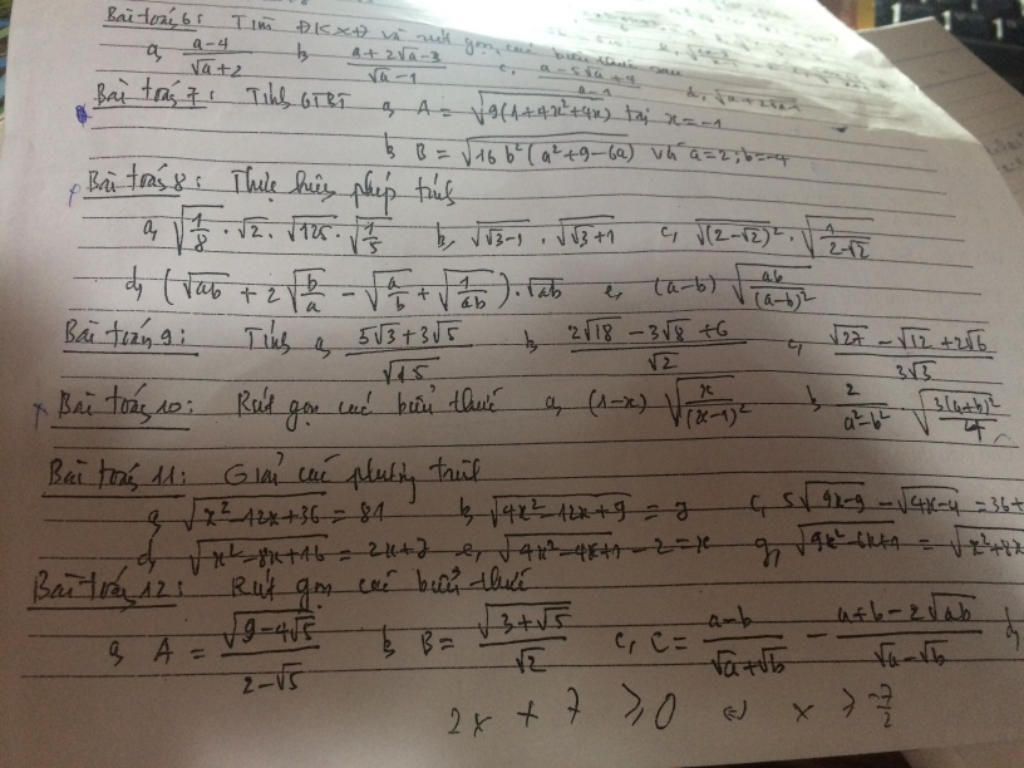 Bài toán 6: Tìm ĐKXĐ và rút gọn các biểu thức sau
a, (a-4)/(√a+2) b, (a+2√a-3)/(√a-1) c, (a-5√a+4)/(a-1) d,
Bài toán 7: Tính GTBT a, A = √(9(1+4x²+4x)) tại x = -1
b, B = √(16b²(a²+9-6a)) với a=2; b=-4
Bài toán 8: Thực hiện phép tính
a, √(1/8) . √2 . √125 . √(1/5) b, √(√3-1) . √(√3+1) c, √((2-√2)²) . √(1/(2-√2))
d, (√ab + 2√(b/a) - √(a/b) + √(1/ab)) . √ab e, (a-b) √(ab/(a-b)²)
Bài toán 9: Tính a, (5√3+3√5)/√15 b, (2√18-3√8+6)/√2 c, (√27-√12+2√6)/(3√3)
Bài toán 10: Rút gọn các biểu thức a, (1-x) √(x/(x-1)²) b, 2/(a²-b²) . √(3(a+b)²/4)
Bài toán 11: Giải các phương trình
a, √(x²-12x+36) = 81 b, √(4x²-12x+9) = c, 5√(9x-9) - √(4x-4) = 36+
d, √(x²-8x+16) = 2x+7 e, √(4x²-4x+1) - 2 = x g, √(9x²-6x+1) =
Bài toán 12: Rút gọn các biểu thức
a, A = √(9-4√5)/(2-√5) b, B = √(3+√5)/√2 c, C = (a-b)/(√a+√b) - (a+b-2√ab)/(√a-√b) d,
2x + 7 ≥ 0 ⇔ x ≥ -7/2